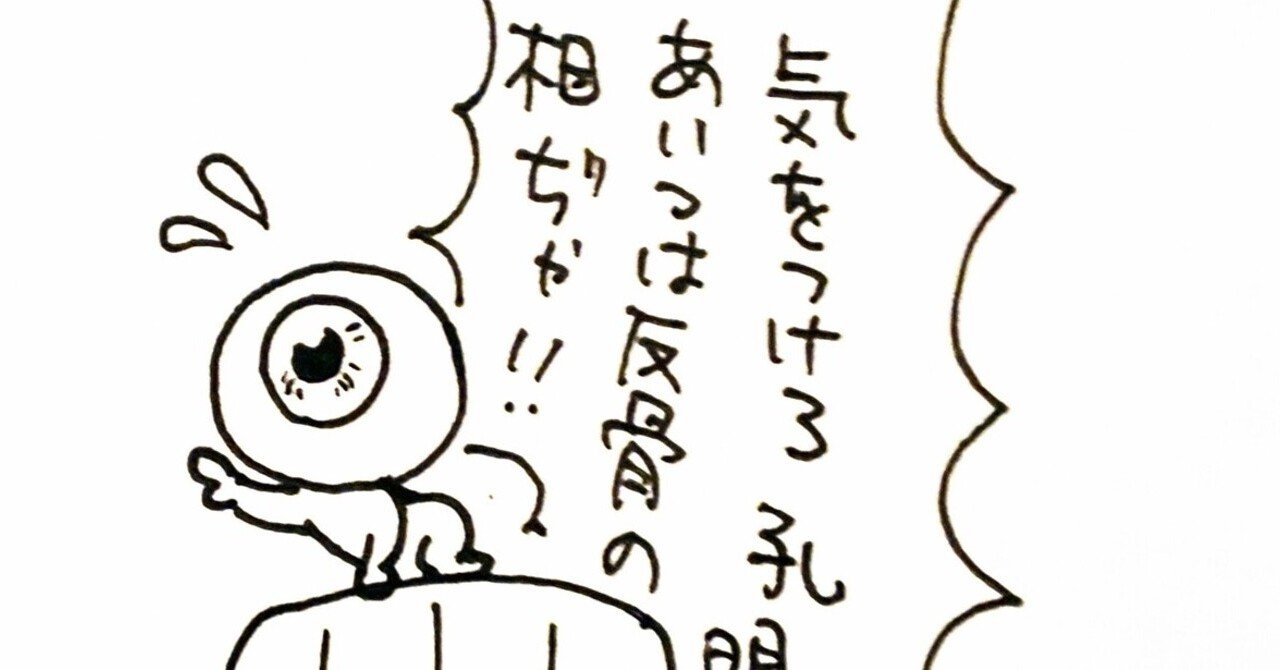 気をつけろ 孔明
あいつは反骨の
相ぢゃ!!